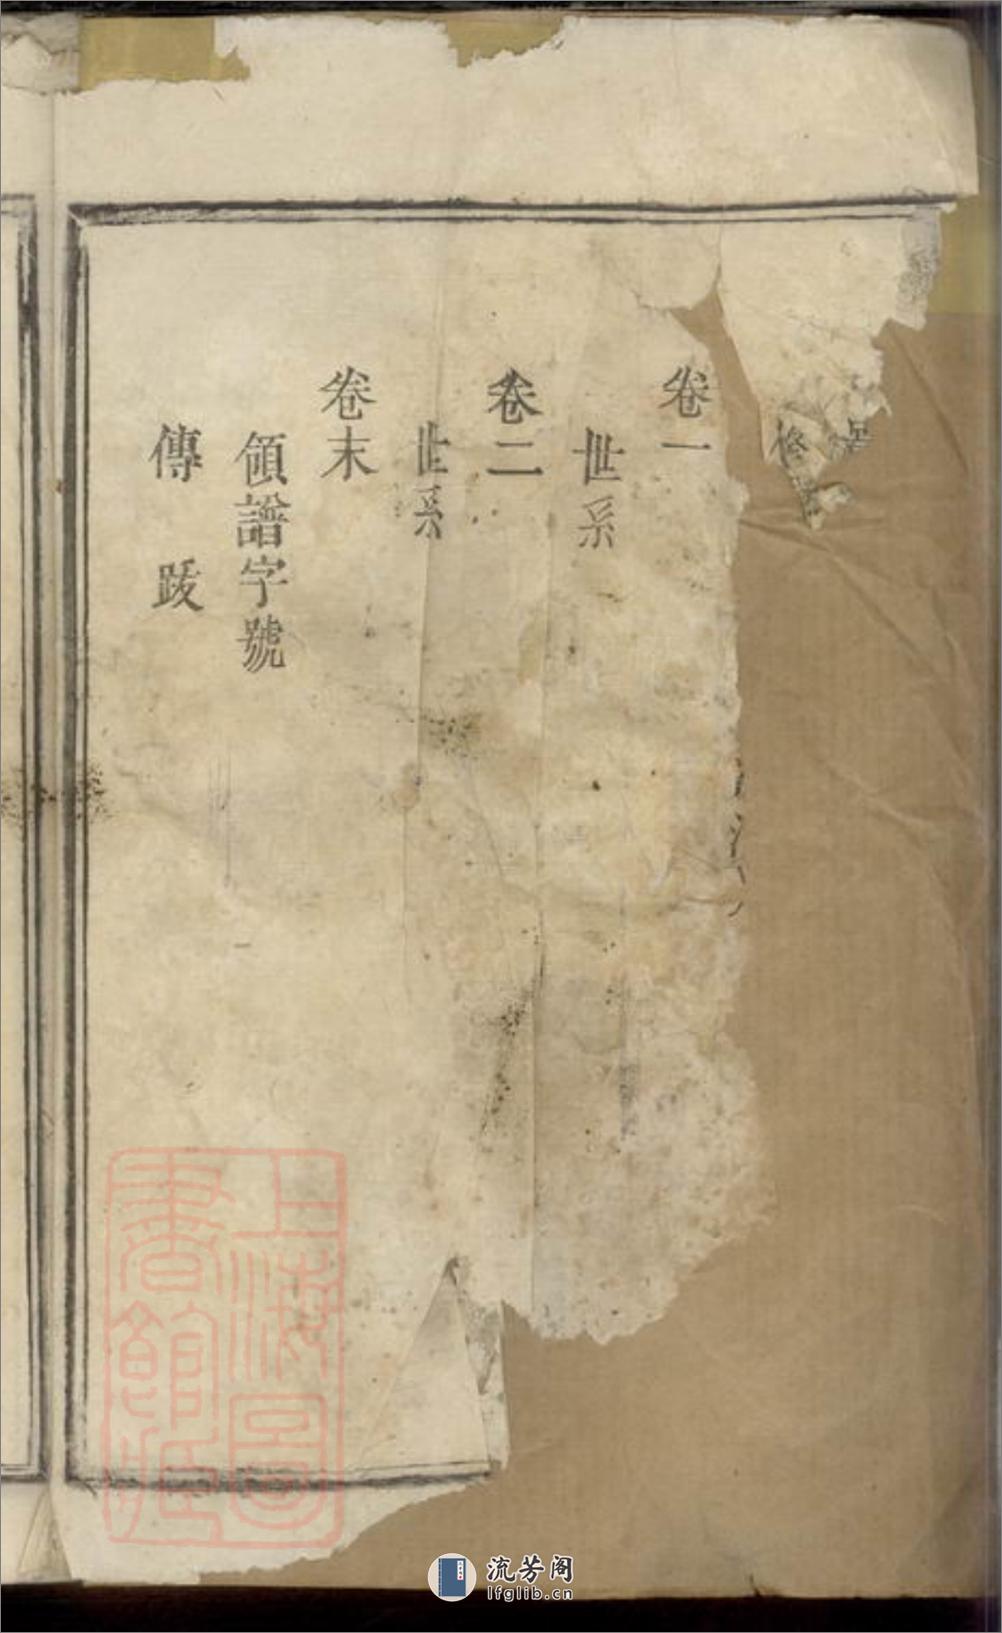 修
卷一
世系
卷二
世系
卷末
領譜字號
傳 跋
上海圖
書館藏
流芳阁
lfglib.cn